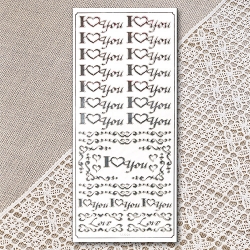 I♡You I♡You
I♡You I♡You
I♡You I♡You
I♡You I♡You
I♡You I♡You
I♡You I♡You
I♡You
I♡You I♡You I♡You
Love Love